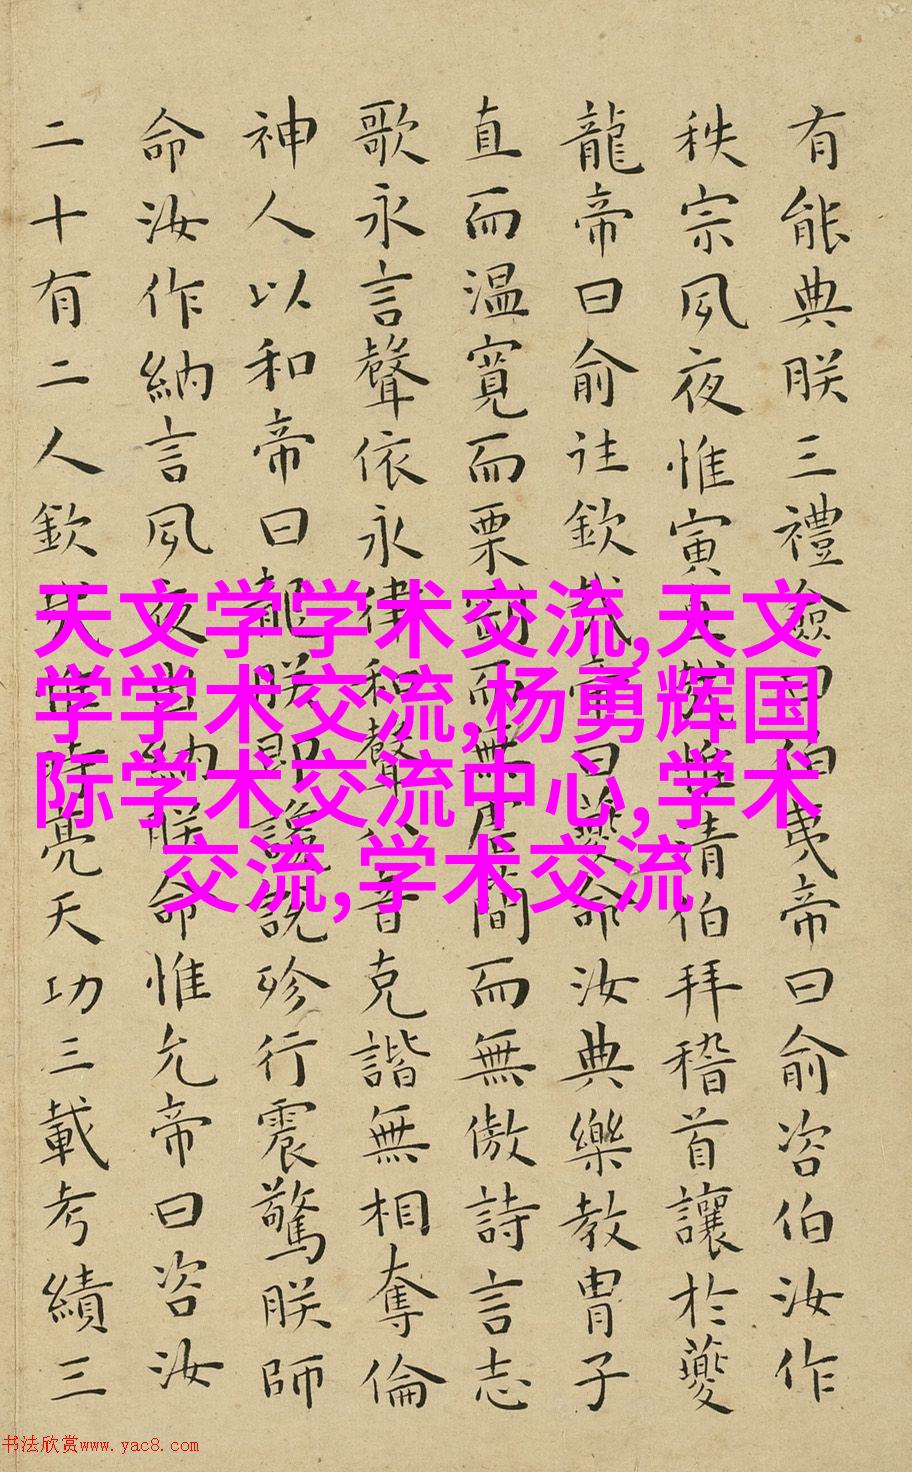 有能典朕三禮僉曰伯夷帝曰俞咨伯汝作
秩宗夙夜惟寅直哉惟清伯拜稽首讓於夔
龍帝曰俞往欽哉帝曰夔命汝典樂教胄子
直而温寬而栗剛而無虐簡而無傲詩言志
歌永言聲依永律和聲八音克諧無相奪倫
神人以和帝曰龍朕堲讒說殄行震驚朕師
命汝作納言夙夜出納朕命惟允帝曰咨汝
二十有二人欽哉惟時亮天功三載考績三
天文学学术交流,天文
学学术交流,杨勇辉国
际学术交流中心,学术
交流,学术交流
书法欣赏www.yac8.com